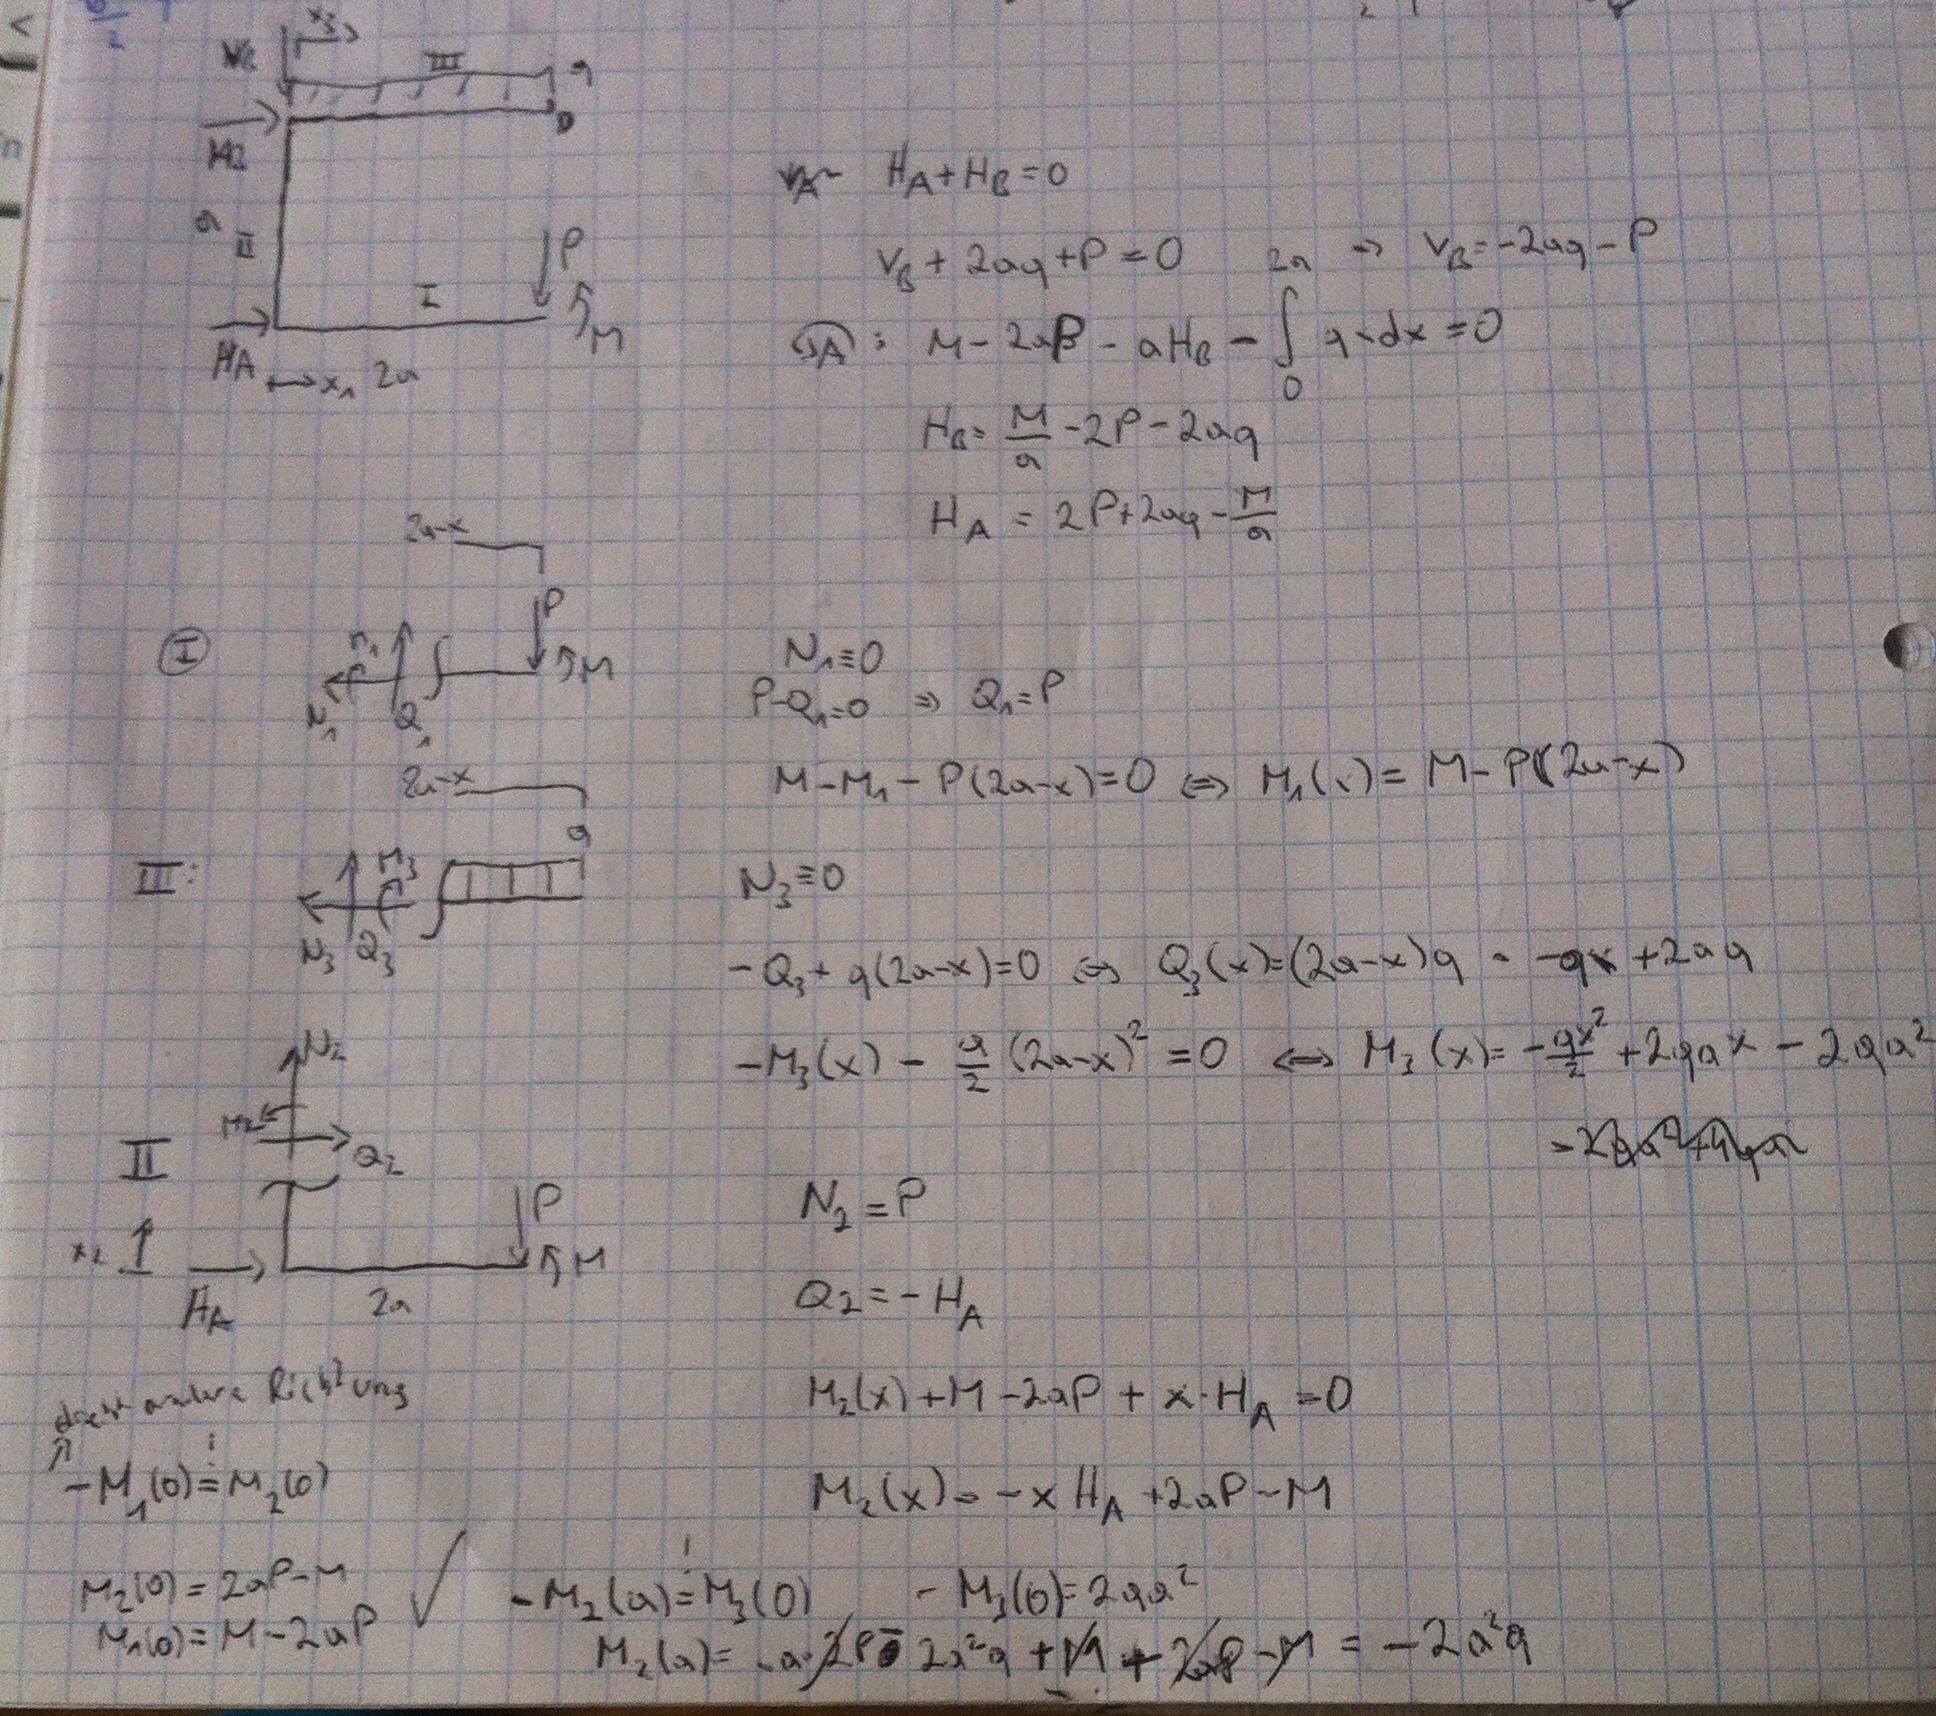 x₃
III
q
H₂
a
II
P
I
M
H_A
x₁ 2a
H_A + H_B = 0
V_B + 2aq + P = 0 ⇒ V_B = -2aq - P
A: M - 2aP - aH_B - ∫₀²ᵃ q·x dx = 0
H_B = M/a - 2P - 2aq
H_A = 2P + 2aq - M/a
2a-x
I
M₁
P
M
N₁ Q₁
N₁ ≡ 0
P - Q₁ = 0 ⇒ Q₁ = P
M - M₁ - P(2a-x) = 0 ⇔ M₁(x) = M - P(2a-x)
2a-x
q
III:
M₃
N₃ Q₃
N₃ ≡ 0
-Q₃ + q(2a-x) = 0 ⇔ Q₃(x) = (2a-x)q = -qx + 2aq
-M₃(x) - q/2 (2a-x)² = 0 ⇔ M₃(x) = -qx²/2 + 2qax - 2qa²
N₂
M₂
Q₂
II
P
M
x₂
H_A
2a
N₂ = P
Q₂ = -H_A
M₂(x) + M - 2aP + x·H_A = 0
M₂(x) = -x H_A + 2aP - M
dreht andere Richtung
-M₁(0) = M₂(0)
!
M₂(0) = 2aP - M
M₁(0) = M - 2aP
✓
-M₂(a) = M₃(0)
!
- M₃(0) = 2qa²
M₂(a) = -a·2P - 2a²q + M + 2aP - M = -2a²q